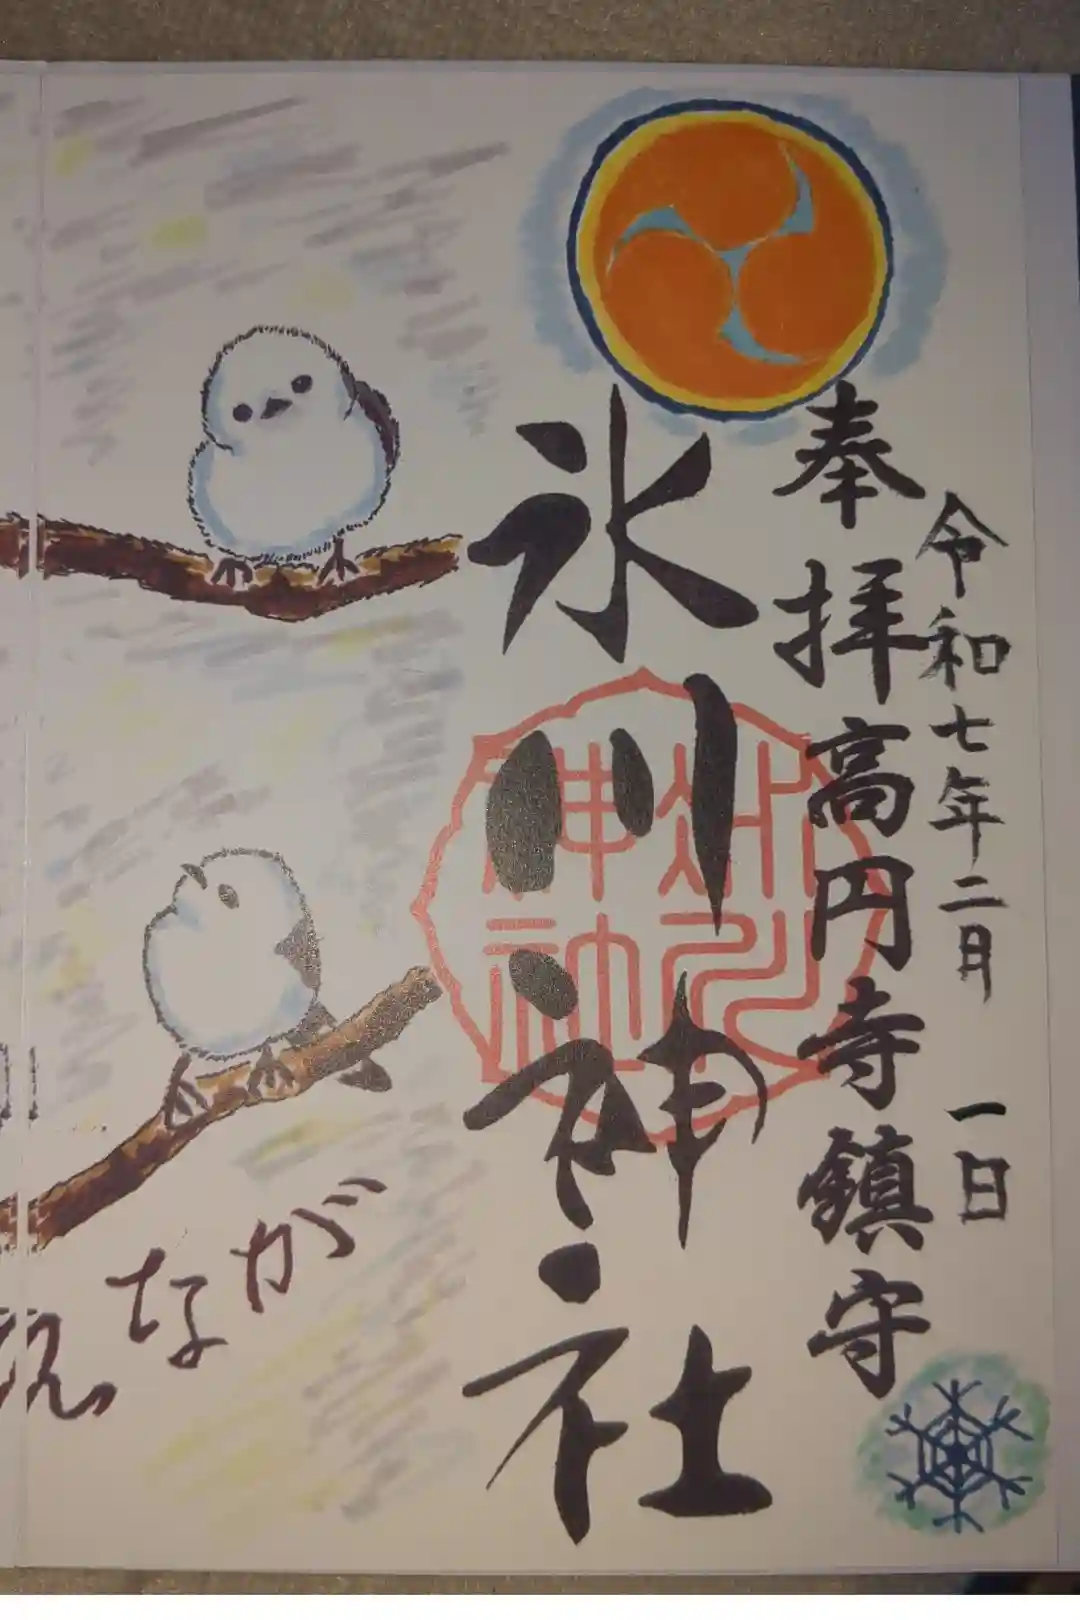 令和七年二月 一日
奉拝 高円寺鎮守
氷川神社
氷川神社
なが